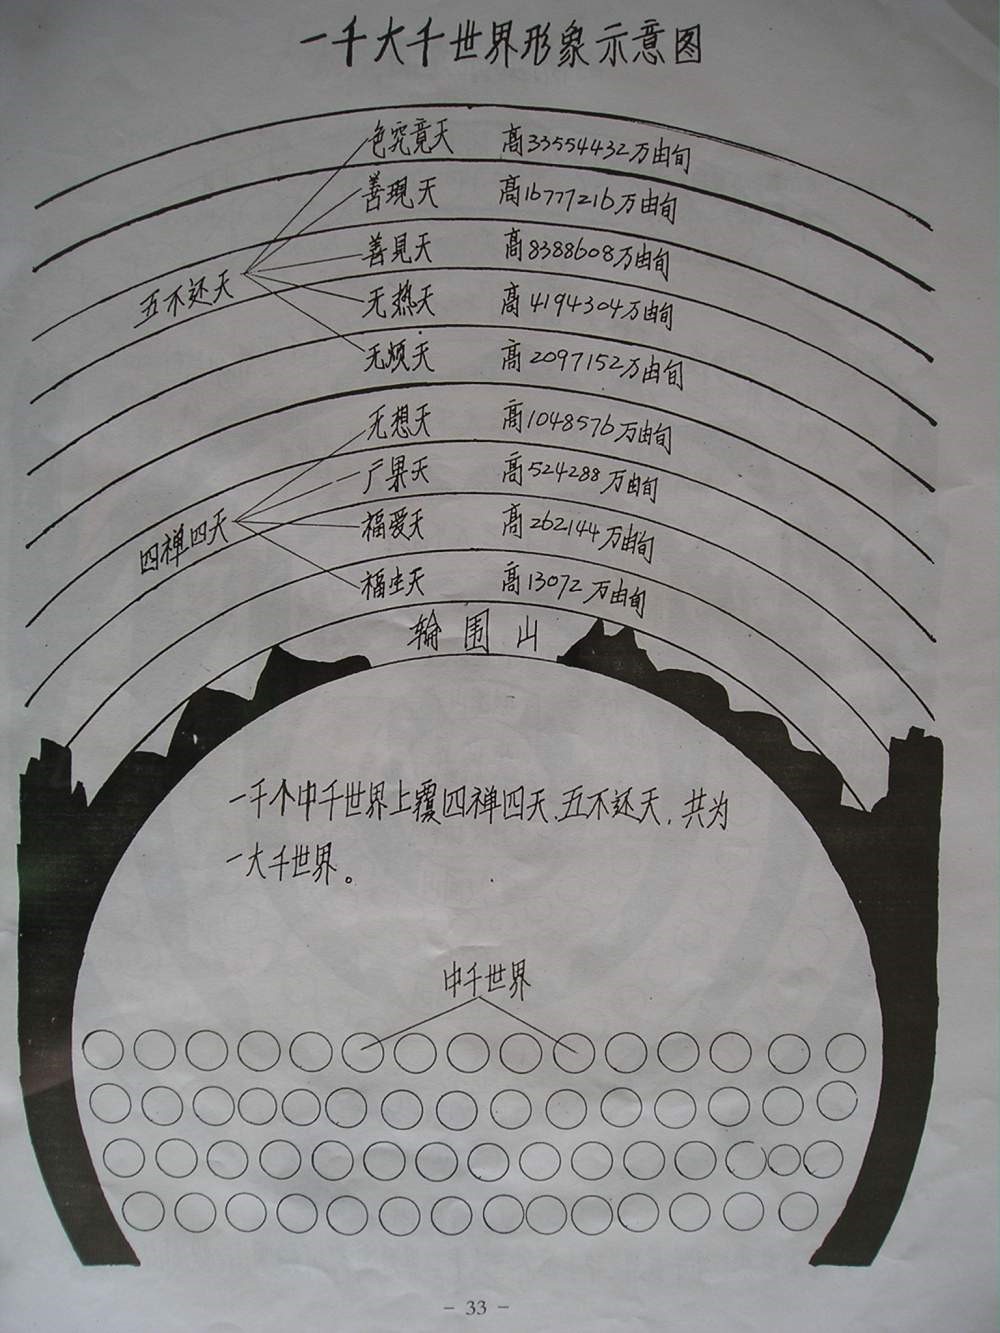 一千大千世界形象示意图
色究竟天 高33554432万由旬
善現天 高16777216万由旬
善見天 高8388608万由旬
五不还天
无热天 高4194304万由旬
无烦天 高2097152万由旬
无想天 高1048576万由旬
广果天 高524288万由旬
四禅四天
福爱天 高262144万由旬
福生天 高13072万由旬
輪围山
一千个中千世界上覆四禅四天、五不还天，共为
一大千世界。
中千世界
- 33 -